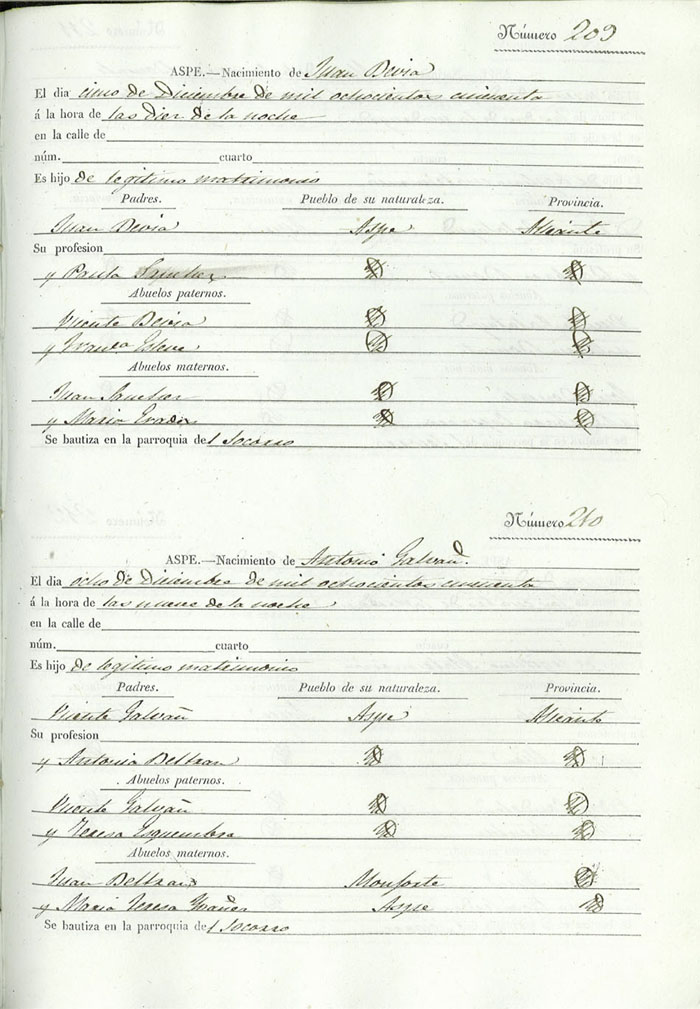 Número 209
ASPE.—Nacimiento de Juan Devia
El dia cinco de Diciembre de mil ochocientos cincuenta
á la hora de las diez de la noche
en la calle de
núm. cuarto
Es hijo de legitimo matrimonio
Padres. Pueblo de su naturaleza. Provincia.
Juan Devia Aspe Alicante
Su profesion
y Paula Sanchez
Abuelos paternos.
Vicente Devia
y Franca Esteve
Abuelos maternos.
Juan Sanchez
y Maria
Se bautiza en la parroquia del Socorro
Número 210
ASPE.—Nacimiento de Antonio Galvañ.
El dia ocho de Diciembre de mil ochocientos cincuenta
á la hora de las nueve de la noche
en la calle de
núm. cuarto
Es hijo de legitimo matrimonio
Padres. Pueblo de su naturaleza. Provincia.
Vicente Galvañ Aspe Alicante
Su profesion
y Antonia Beltran
Abuelos paternos.
Vicente Galvañ
y Teresa Esquembre
Abuelos maternos.
Juan Beltran Monforte
y Maria Teresa Ybañez Aspe
Se bautiza en la parroquia del Socorro